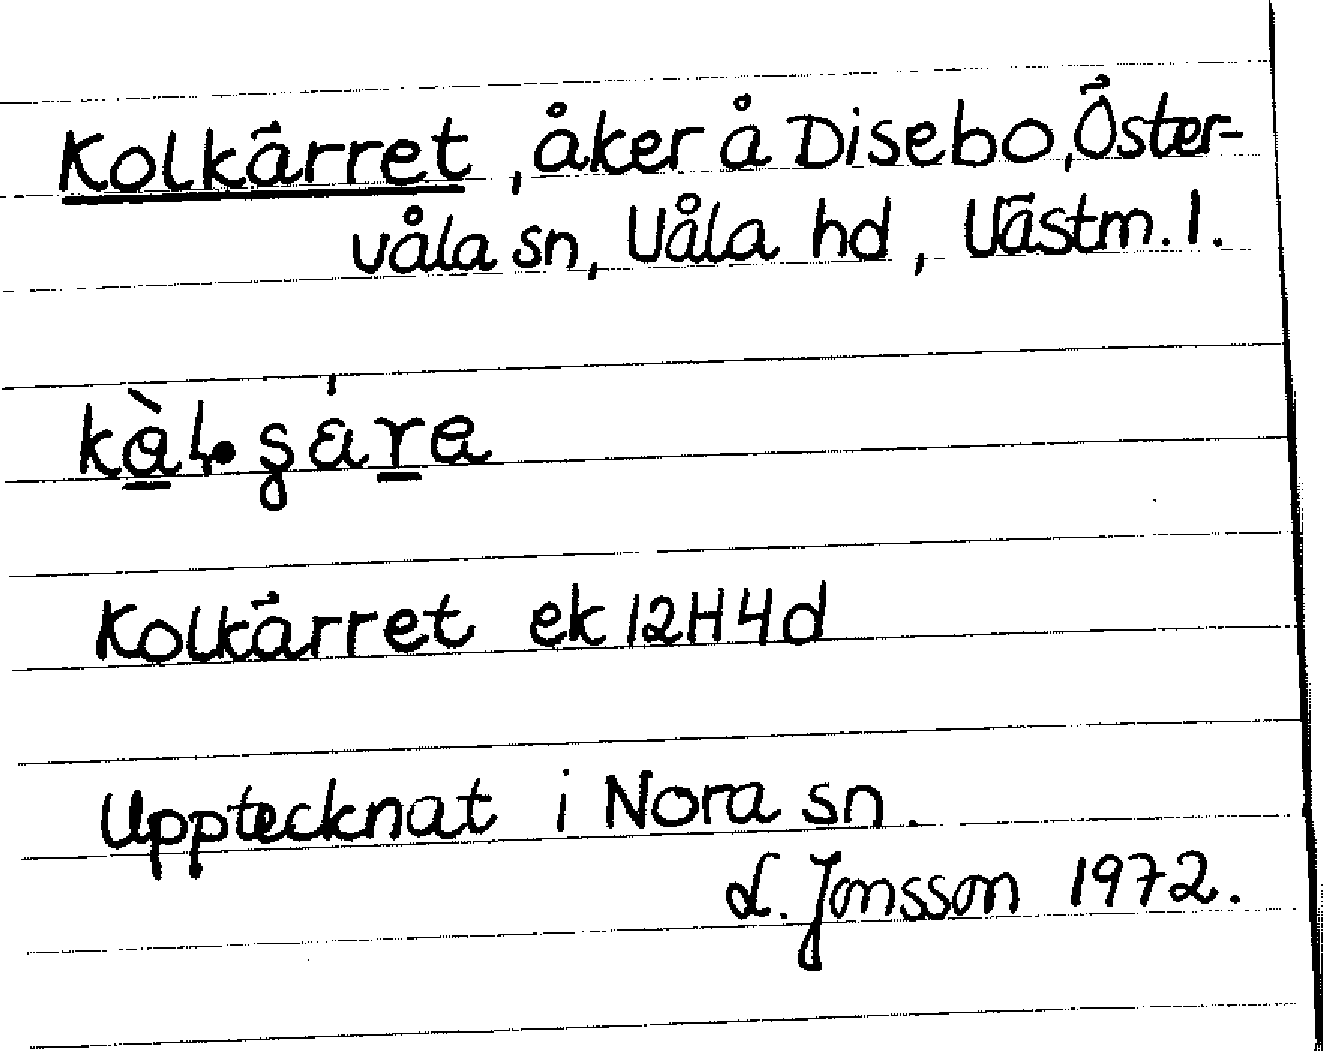 Kolkärret, åker å Disebo, Öster-
våla sn, Våla hd, Västm. l.
Kolkärret ek 12H4d
Upptecknat i Nora sn.
L. Jonsson 1972.